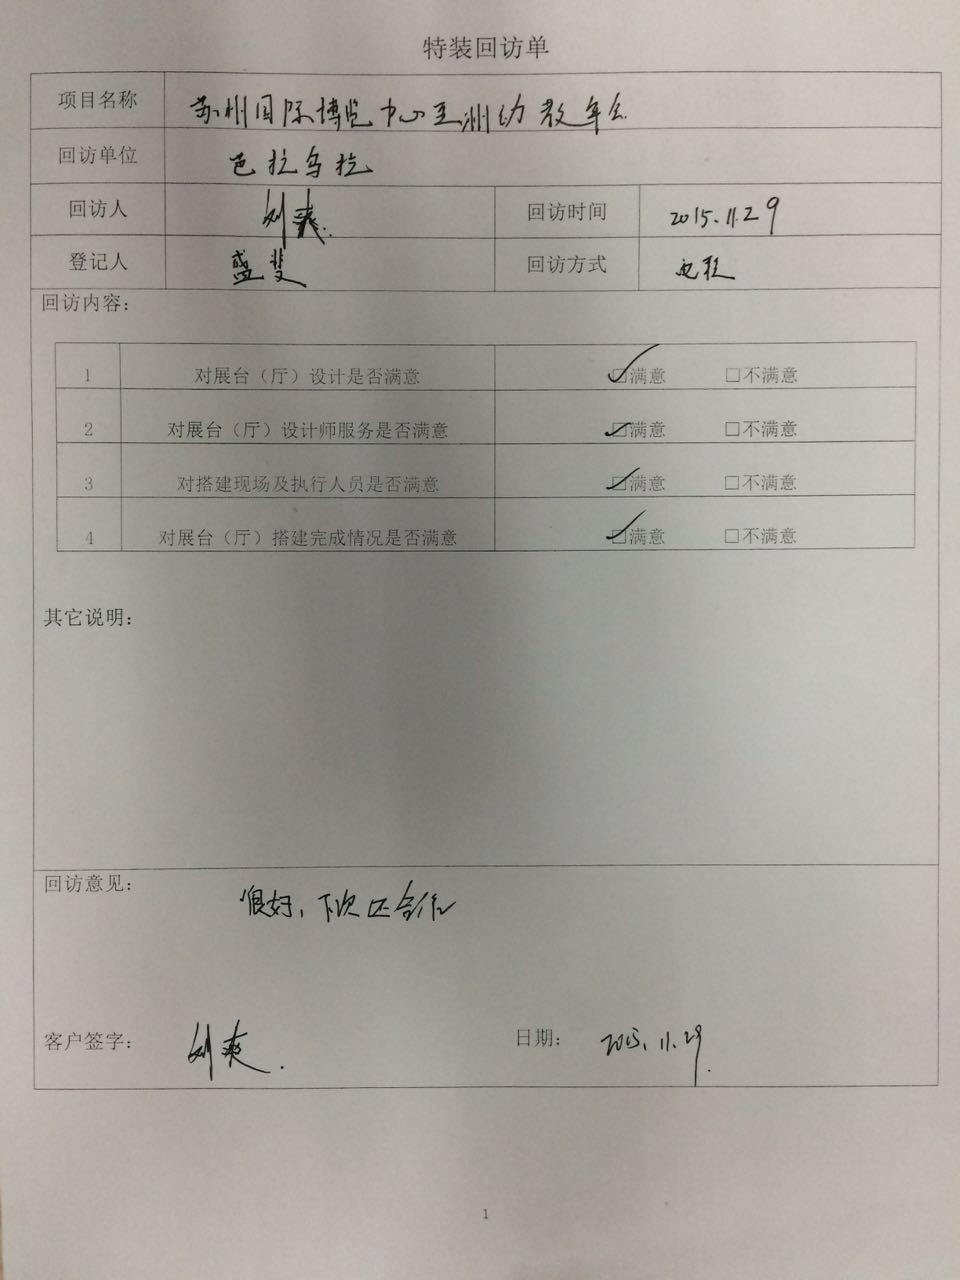 特装回访单
项目名称 苏州国际博览中心亚洲幼教年会
回访单位 巴拉乌拉
回访人 刘爽 回访时间 2015.11.29
登记人 盛斐 回访方式
回访内容：
1 对展台（厅）设计是否满意 ☑满意 □不满意
2 对展台（厅）设计师服务是否满意 ☑满意 □不满意
3 对搭建现场及执行人员是否满意 ☑满意 □不满意
4 对展台（厅）搭建完成情况是否满意 ☑满意 □不满意
其它说明：
回访意见：
很好，下次还合作
客户签字： 刘爽. 日期： 2015.11.29.
1